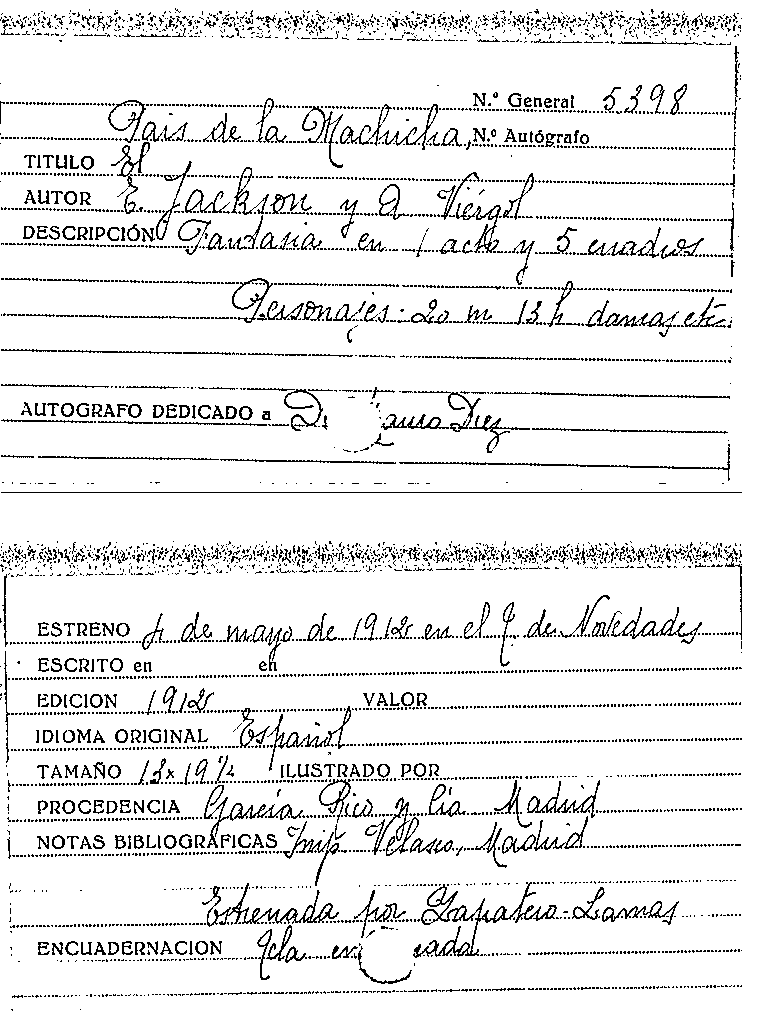 N.º General 5398
Pais de la Machicha, N.º Autógrafo
TITULO El
AUTOR E. Jackson y A Viérgol
DESCRIPCIÓN Fantasia en 1 acto y 5 cuadros
Personajes: 20 m 13 h damas etc.
AUTOGRAFO DEDICADO a Diez
ESTRENO 4 de mayo de 1912 en el T. de Novedades
ESCRITO en en
EDICION 1912 VALOR
IDIOMA ORIGINAL Español
TAMAÑO 13 x 19 1/2 ILUSTRADO POR
PROCEDENCIA García Rico y Cía Madrid
NOTAS BIBLIOGRÁFICAS Imp. Velasco, Madrid
Estrenada por Zapatero-Lamas
ENCUADERNACION Tela